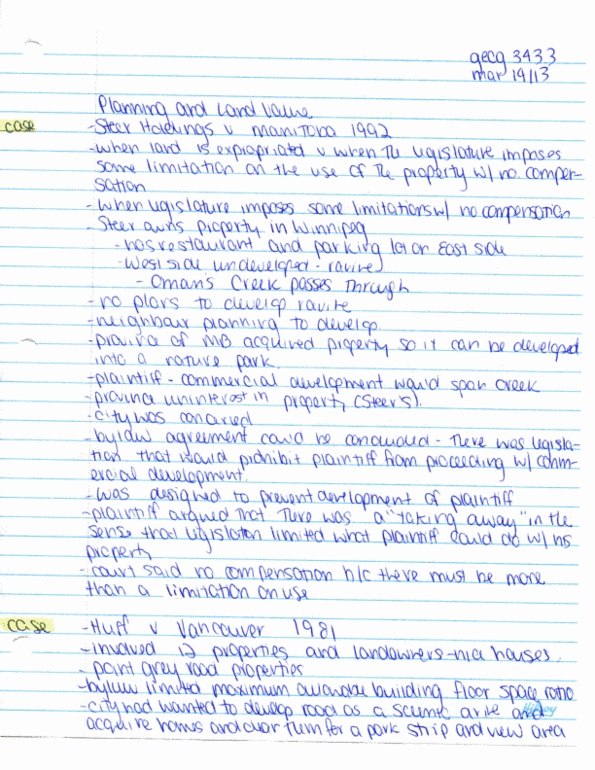 gecg 3433
mar 19/13
Planning and Land Value
case
- Steer Holdings v Manitoba 1992
- when land is expropriated v when the legislature imposes
some limitation on the use of the property w/ no compen-
sation
- when legislature imposes some limitations w/ no compensation
- Steer owns property in Winnipeg
- has restaurant and parking lot on East side
- West side undeveloped - ravine
- Oman's Creek passes through
- no plans to develop ravine
- neighbour planning to develop
- province of MB acquired property so it can be developed
into a nature park.
- plaintiff - commercial development would span creek
- province uninterest in property (Steer's).
- city was concerned
- bylaw agreement could be concluded - There was legisla-
tion that would prohibit plaintiff from proceeding w/ comm-
ercial development.
- was designed to prevent development of plaintiff
- plaintiff argued that there was a "taking away" in the
sense that legislation limited what plaintiff could do w/ his
property
- court said no compensation b/c there must be more
than a limitation on use
case
- Huff v Vancouver 1981
- involved 12 properties and landowners - nice houses
- point grey road properties
- bylaw limited maximum allowable building floor space ratio
- city had wanted to develop road as a scenic drive and
acquire homes and clear them for a park strip and view area